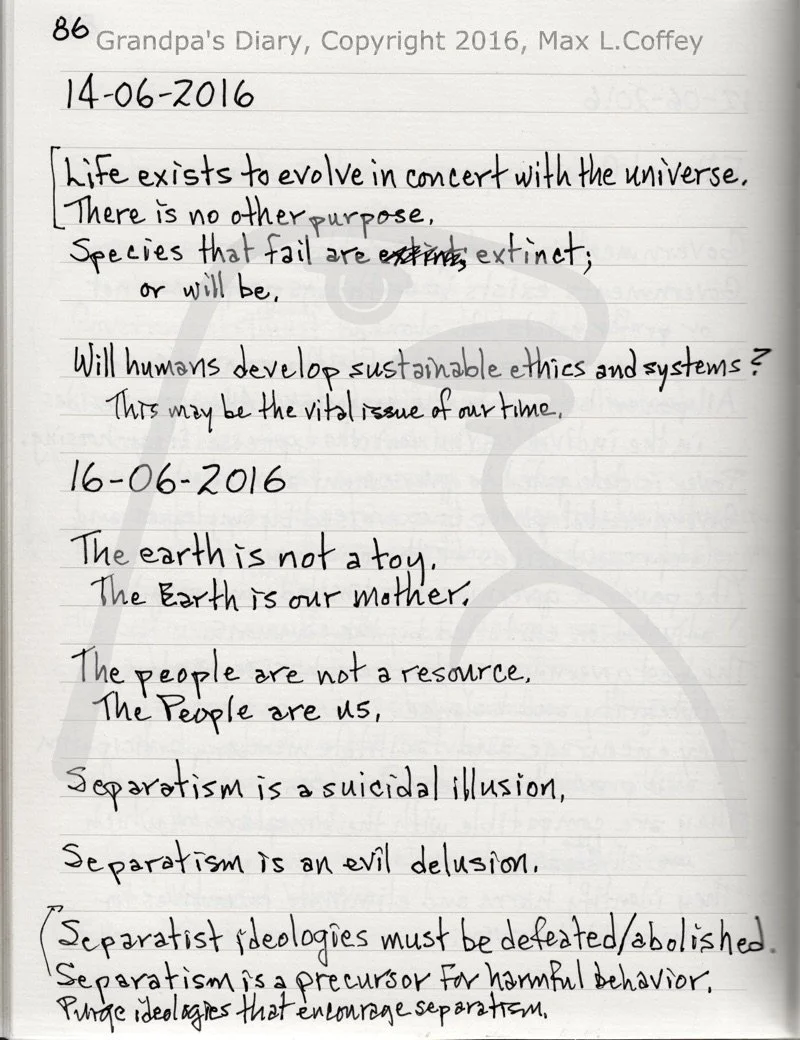 86
Grandpa's Diary, Copyright 2016, Max L.Coffey
14-06-2016
Life exists to evolve in concert with the universe.
There is no other purpose.
Species that fail are extinct;
or will be.
Will humans develop sustainable ethics and systems?
This may be the vital issue of our time.
16-06-2016
The earth is not a toy.
The Earth is our mother.
The people are not a resource.
The People are us.
Separatism is a suicidal illusion,
Separatism is an evil delusion.
Separatist ideologies must be defeated/abolished.
Separatism is a precursor for harmful behavior.
Purge ideologies that encourage separatism.